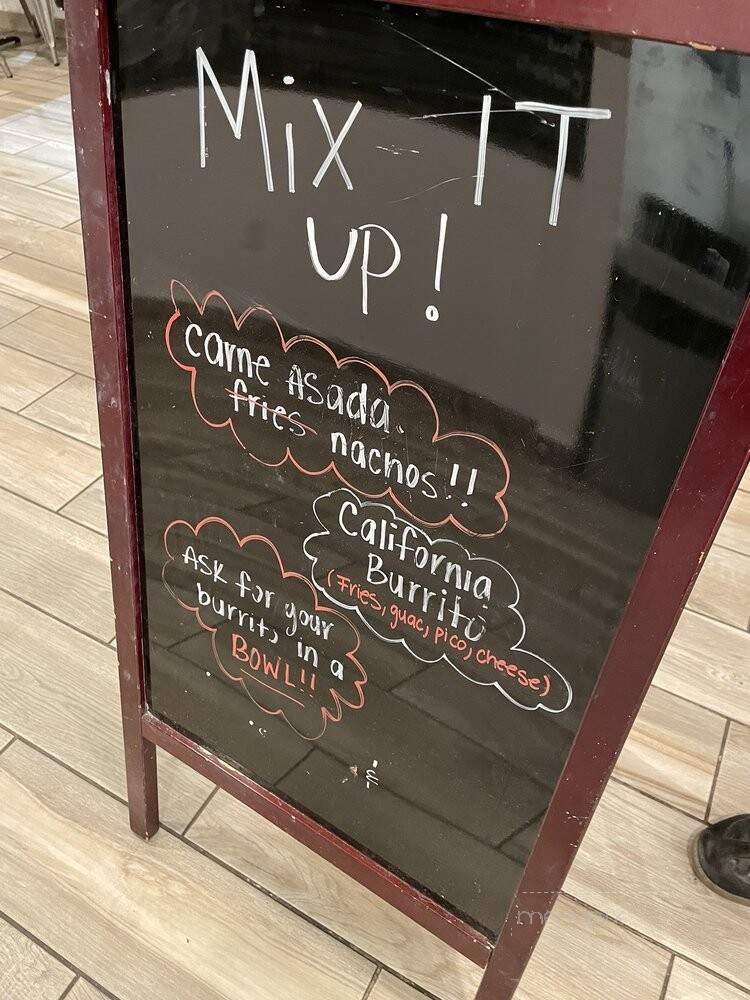 Mix-IT
UP!
Carne Asada
fries nachos!!
California
Burrito
(Fries, guac, pico, cheese)
Ask for your
burrito in a
BOWL!!